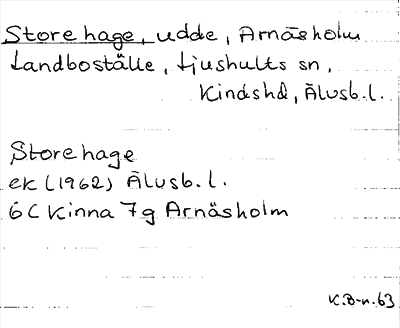 Storehage, udde, Arnäsholm
Landboställe, Ljushults sn,
Kindshd, Älvsb.l.
Storehage
ek (1962) Älvsb.l.
6C Kinna 7g Arnäsholm
K.B-n.63